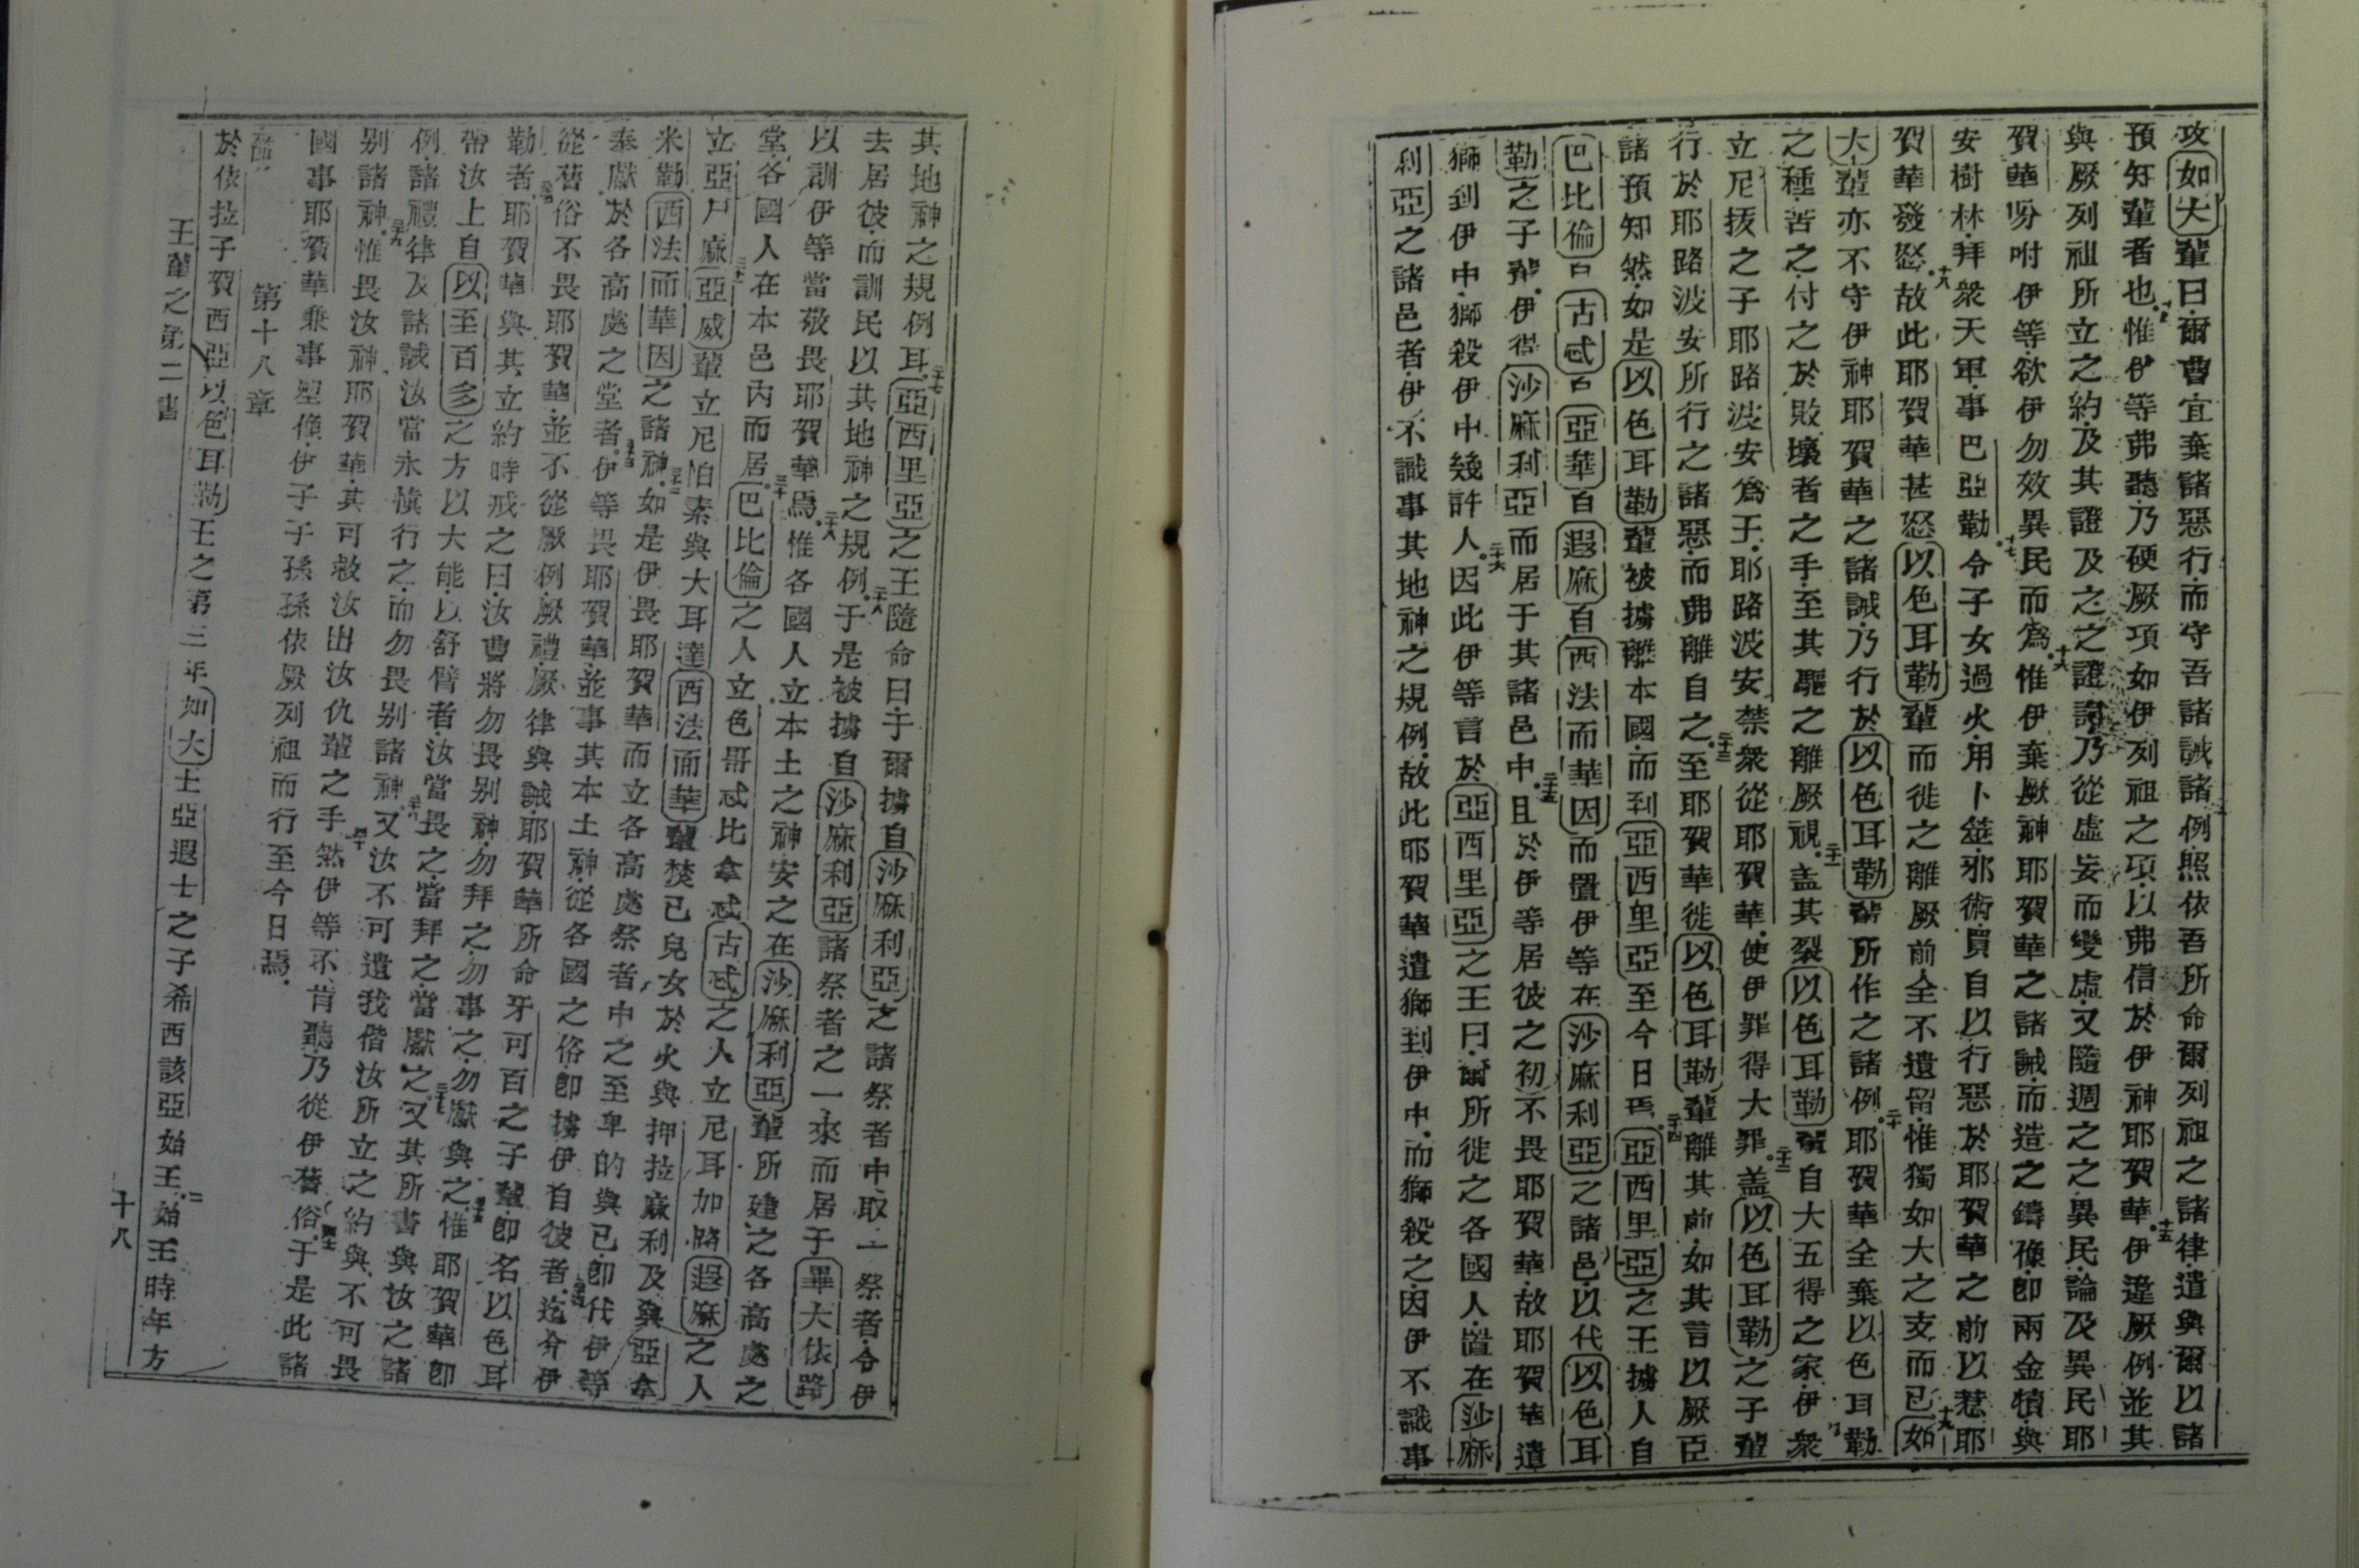 攻如大輩曰爾曹宜棄諸惡行而守吾諸誡諸例照依吾所命爾列祖之諸律遣與爾以諸
預知輩者也十四惟伊等弗聽乃硬厥項如伊列祖之項以弗信於伊神耶賀華十五伊違厥例並其
與厥列祖所立之約及其證及之之證詞乃從虛妄而變虛又隨週之之異民論及異民耶
賀華吩咐伊等欲伊勿效異民而為十六惟伊棄厥神耶賀華之諸誡而造之鑄像即兩金犢與
安樹林拜衆天軍事巴亞勒十七令子女過火用卜筮邪術賣自以行惡於耶賀華之前以惹耶
賀華發怒十八故此耶賀華甚怒以色耳勒輩而徙之離厥前全不遺留惟獨如大之支而已十九如
大輩亦不守伊神耶賀華之諸誡乃行於以色耳勒輩所作之諸例二十耶賀華全棄以色耳勒
之種苦之付之於敗壞者之手至其驅之離厥視二十一盖其裂以色耳勒輩自大五得之家伊衆
立尼拔之子耶路波安為王耶路波安禁衆從耶賀華使伊罪得大罪二十二盖以色耳勒之子輩
行於耶路波安所行之諸惡而弗離自之二十三至耶賀華徙以色耳勒輩離其前如其言以厥臣
諸預知然如是以色耳勒輩被擄離本國而到亞西里亞至今日焉二十四亞西里亞之王擄人自
巴比倫自古忒自亞華自遐麻自西法而華因而置伊等在沙麻利亞之諸邑以代以色耳
勒之子輩伊得沙麻利亞而居于其諸邑中二十五且於伊等居彼之初不畏耶賀華故耶賀華遣
獅到伊中獅殺伊中幾許人二十六因此伊等言於亞西里亞之王曰爾所徙之各國人置在沙麻
利亞之諸邑者伊不識事其地神之規例故此耶賀華遣獅到伊中而獅殺之因伊不識事
其地神之規例耳二十七亞西里亞之王隨命曰于爾擄自沙麻利亞之諸祭者中取一祭者令伊
去居彼而訓民以其地神之規例二十八于是被擄自沙麻利亞諸祭者之一來而居于畢大依路
以訓伊等當敬畏耶賀華焉二十九惟各國人立本土之神安之在沙麻利亞輩所建之各高處之
堂各國人在本邑內而居三十巴比倫之人立色哥忒比拿忒古忒之人立尼耳加路遐麻之人
立亞尸麻三十一亞威輩立尼怕素與大耳達西法而華輩焚己兒女於火與押拉麻利及與亞拿
米勒西法而華因之諸神三十二如是伊畏耶賀華而立各高處祭者中之至卑的與己即代伊等
奉獻於各高處之堂者三十三伊等畏耶賀華並事其本土神從各國之俗即擄伊自彼者三十四迄今伊
從舊俗不畏耶賀華並不從厥例厥禮厥律與誡耶賀華所命牙可百之子輩即名以色耳
勒者三十五耶賀華與其立約時戒之曰汝曹將勿畏別神勿拜之勿事之勿獻與之三十六惟耶賀華即
帶汝上自以至百多之方以大能以舒臂者汝當畏之當拜之當獻之三十七又其所書與汝之諸
例諸禮律及諸誡汝當永慎行之而勿畏別諸神三十八又汝不可遺我偕汝所立之約與不可畏
別諸神三十九惟畏汝神耶賀華其可救汝出汝仇輩之手四十然伊等不肯聽乃從伊舊俗四十一于是此諸
國事耶賀華兼事塑像伊子子孫孫依厥列祖而行至今日焉
第十八章
於依拉子賀西亞以色耳勒王之第三年如大王亞遐士之子希西該亞始王二始王時年方
王輩之第二書
十八